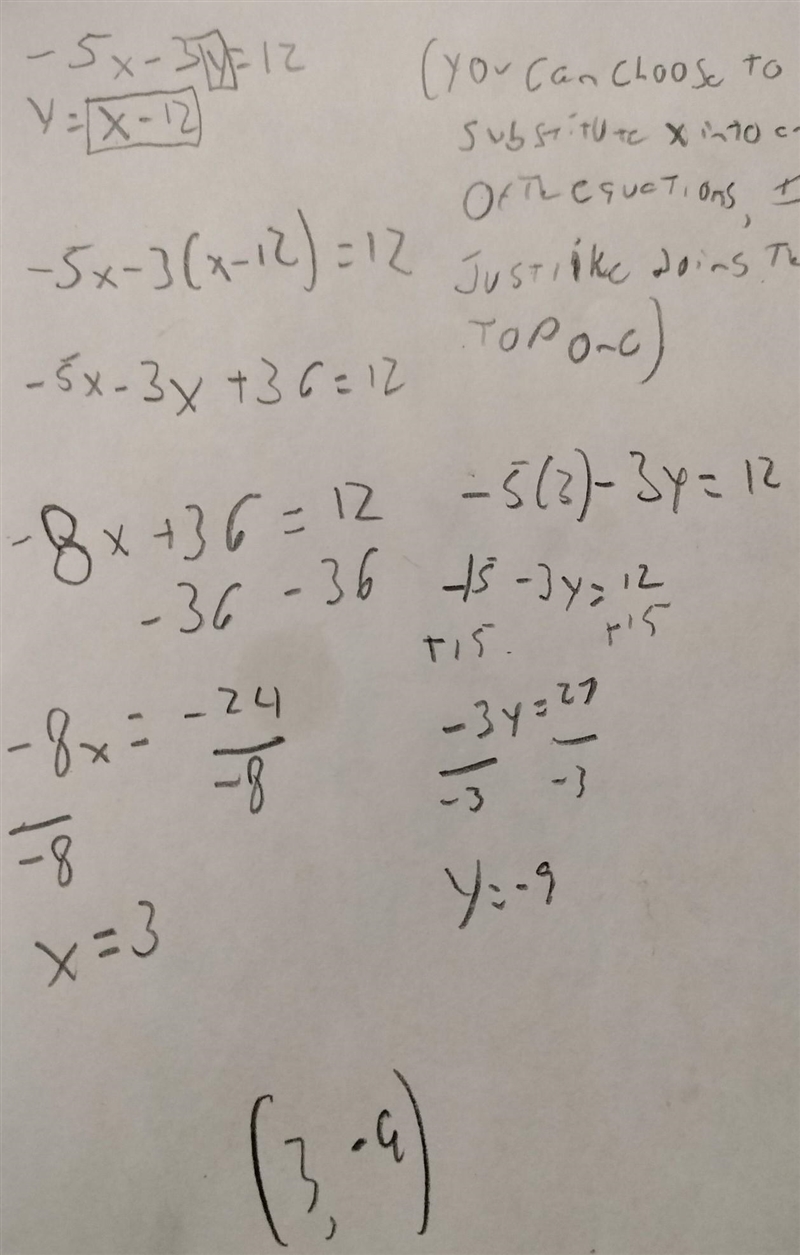 -5x-3y=12
y=x-12
(you can choose to
substitute x into
of the equations,
Just like doing
Top one)
-5x-3(x-12)=12
-5x-3x+36=12
-8x+36=12
-36 -36
-8x = -24
-8 -8
x=3
-5(3)-3y=12
-15-3y=12
+15. +15
-3y=27
-3 -3
y=-9
(3,-9)